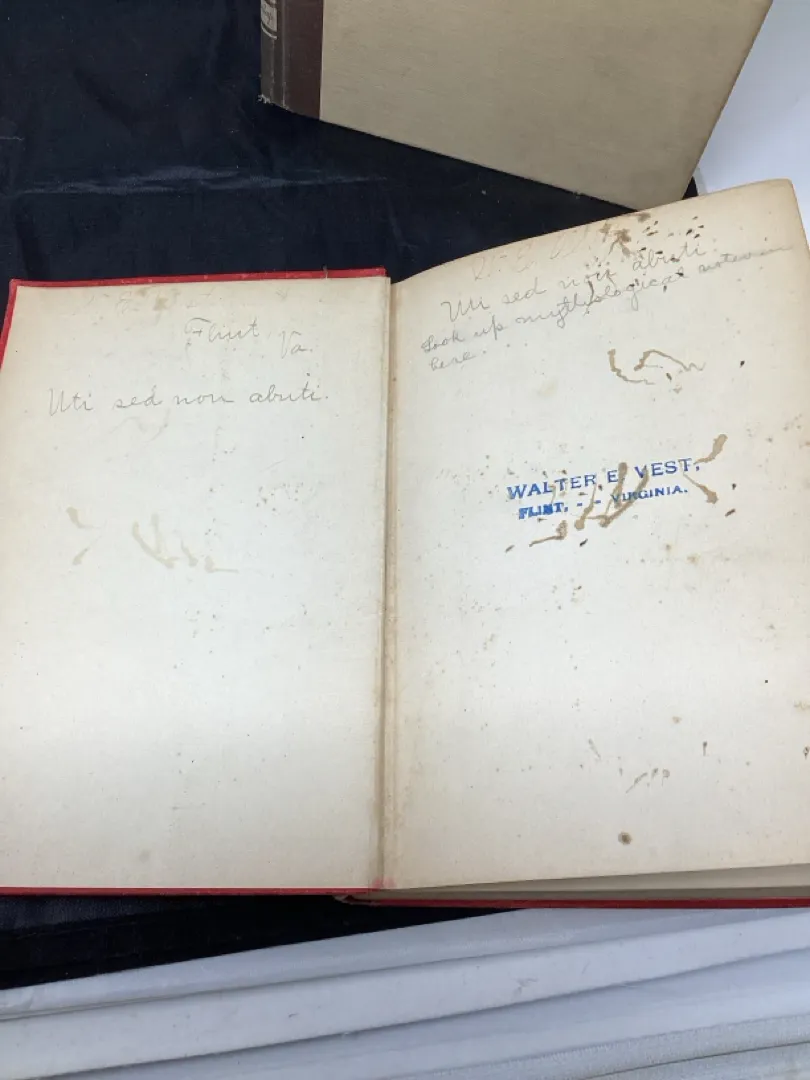 Flint
Va.
Uti sed non abuti.
Uti sed non abuti.
Look up mythological
here.
WALTER E. VEST,
FLINT, - - VIRGINIA.